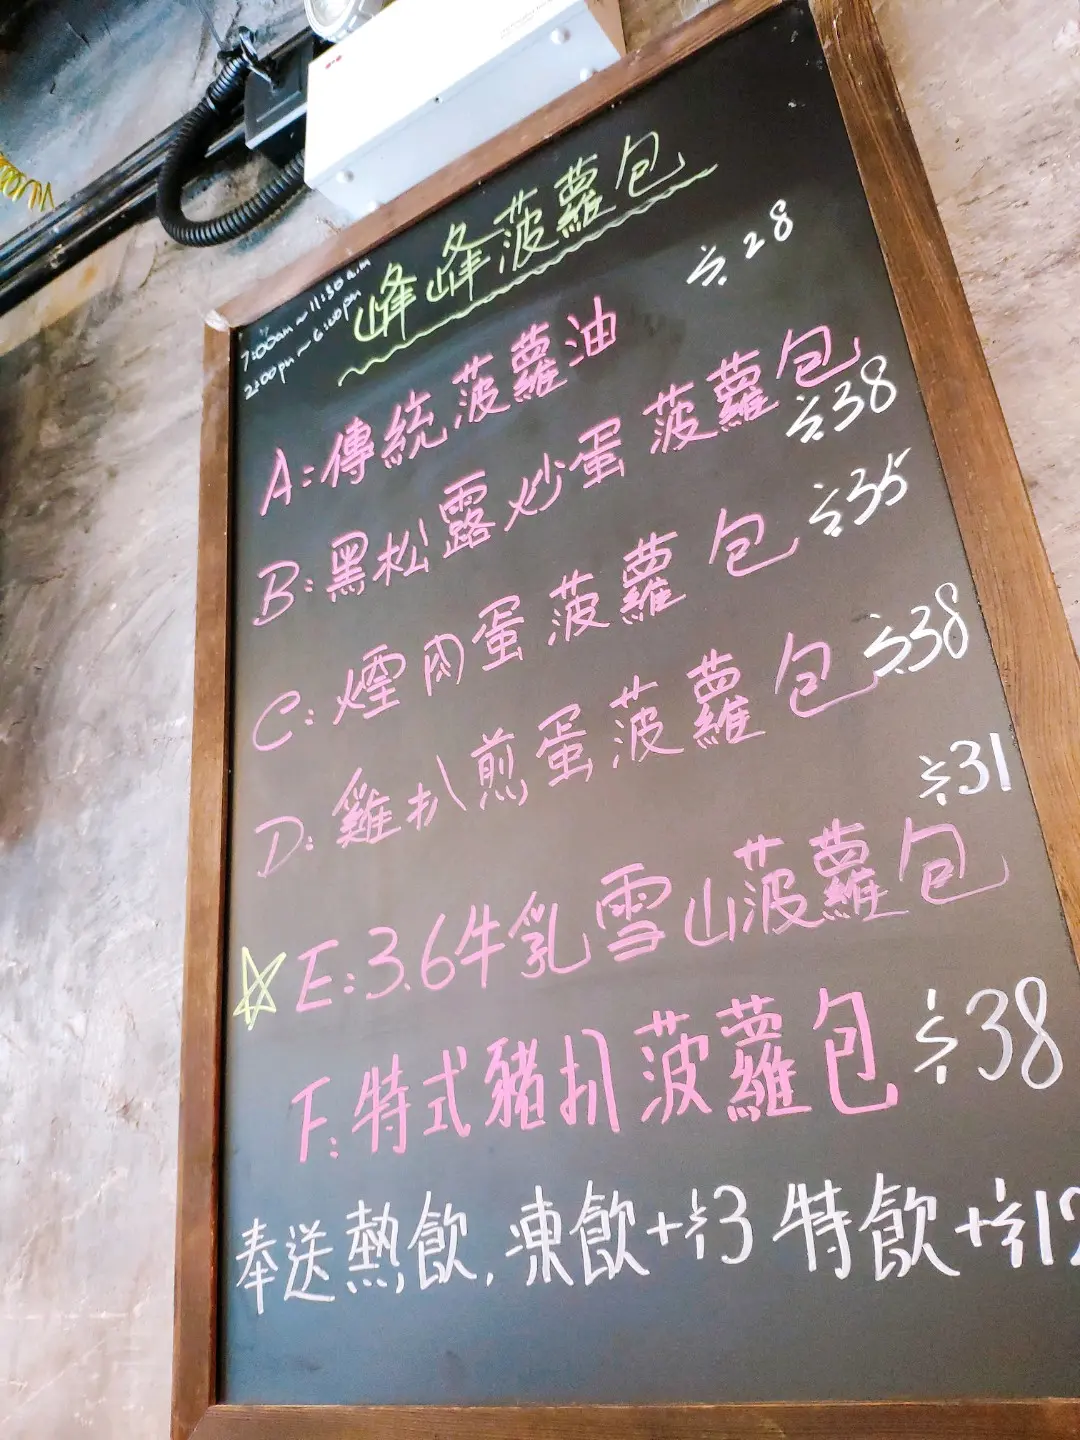 峰峰菠蘿包
7:00am ~ 11:30a.m
2:00pm ~ 6:00pm
A:傳統菠蘿油 $28
B:黑松露炒蛋菠蘿包 $38
C:煙肉蛋菠蘿包 $35
D:雞扒煎蛋菠蘿包 $38
E:3.6牛乳雪山菠蘿包 $31
F:特式豬扒菠蘿包 $38
奉送熱飲,凍飲+$3 特飲+$12